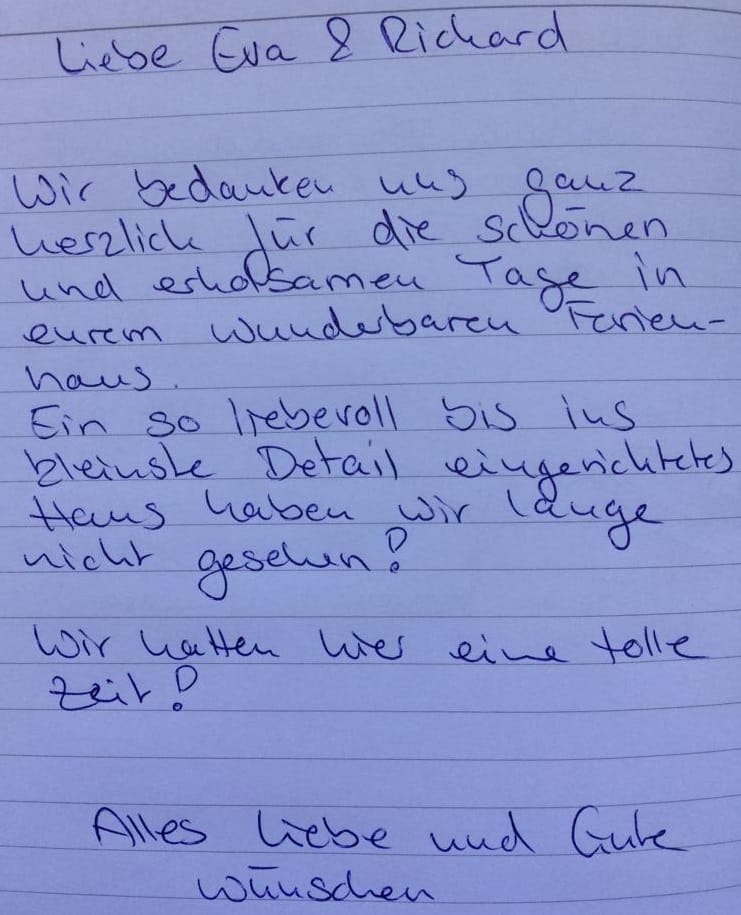 Liebe Eva & Richard
Wir bedanken uns ganz
herzlich für die schönen
und erholsamen Tage in
eurem wunderbaren Ferien-
haus.
Ein so liebevoll bis ins
kleinste Detail eingerichtetes
Haus haben wir lange
nicht gesehen!
Wir hatten hier eine tolle
Zeit!
Alles Liebe und Gute
wünschen